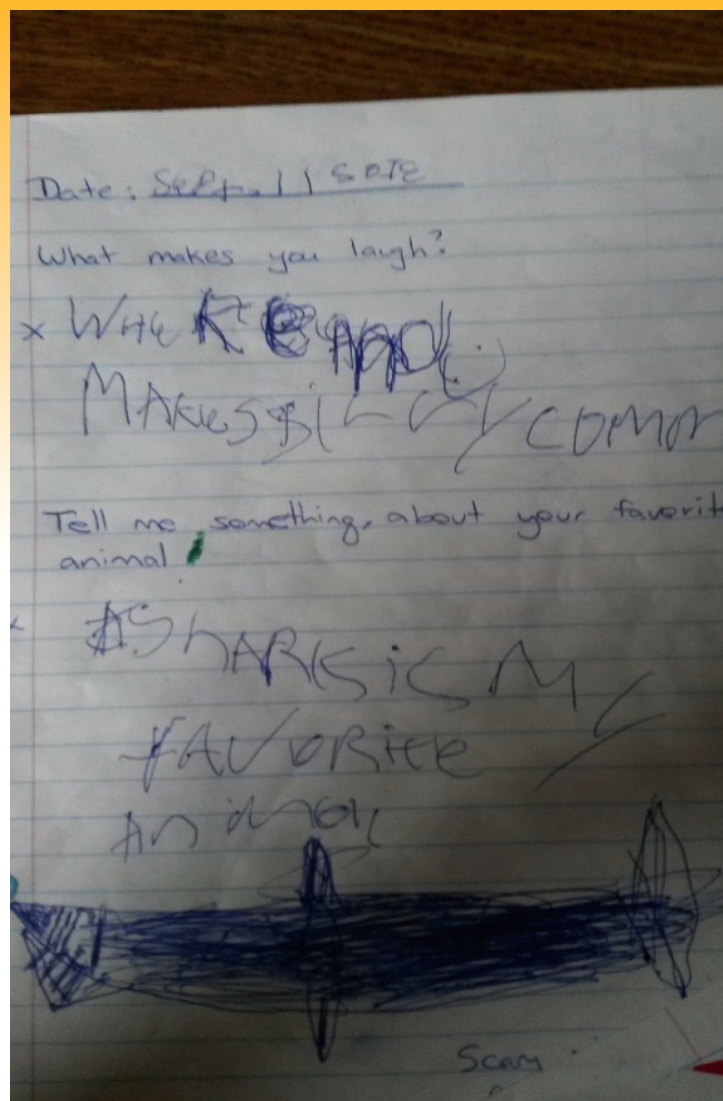 Date: Sept. 11
What makes you laugh?
x
MAKES SiLLY COMM
Tell me something, about your favorit
animal
SHARKS iS MY
FAVORitE
ANiMAL
Scary